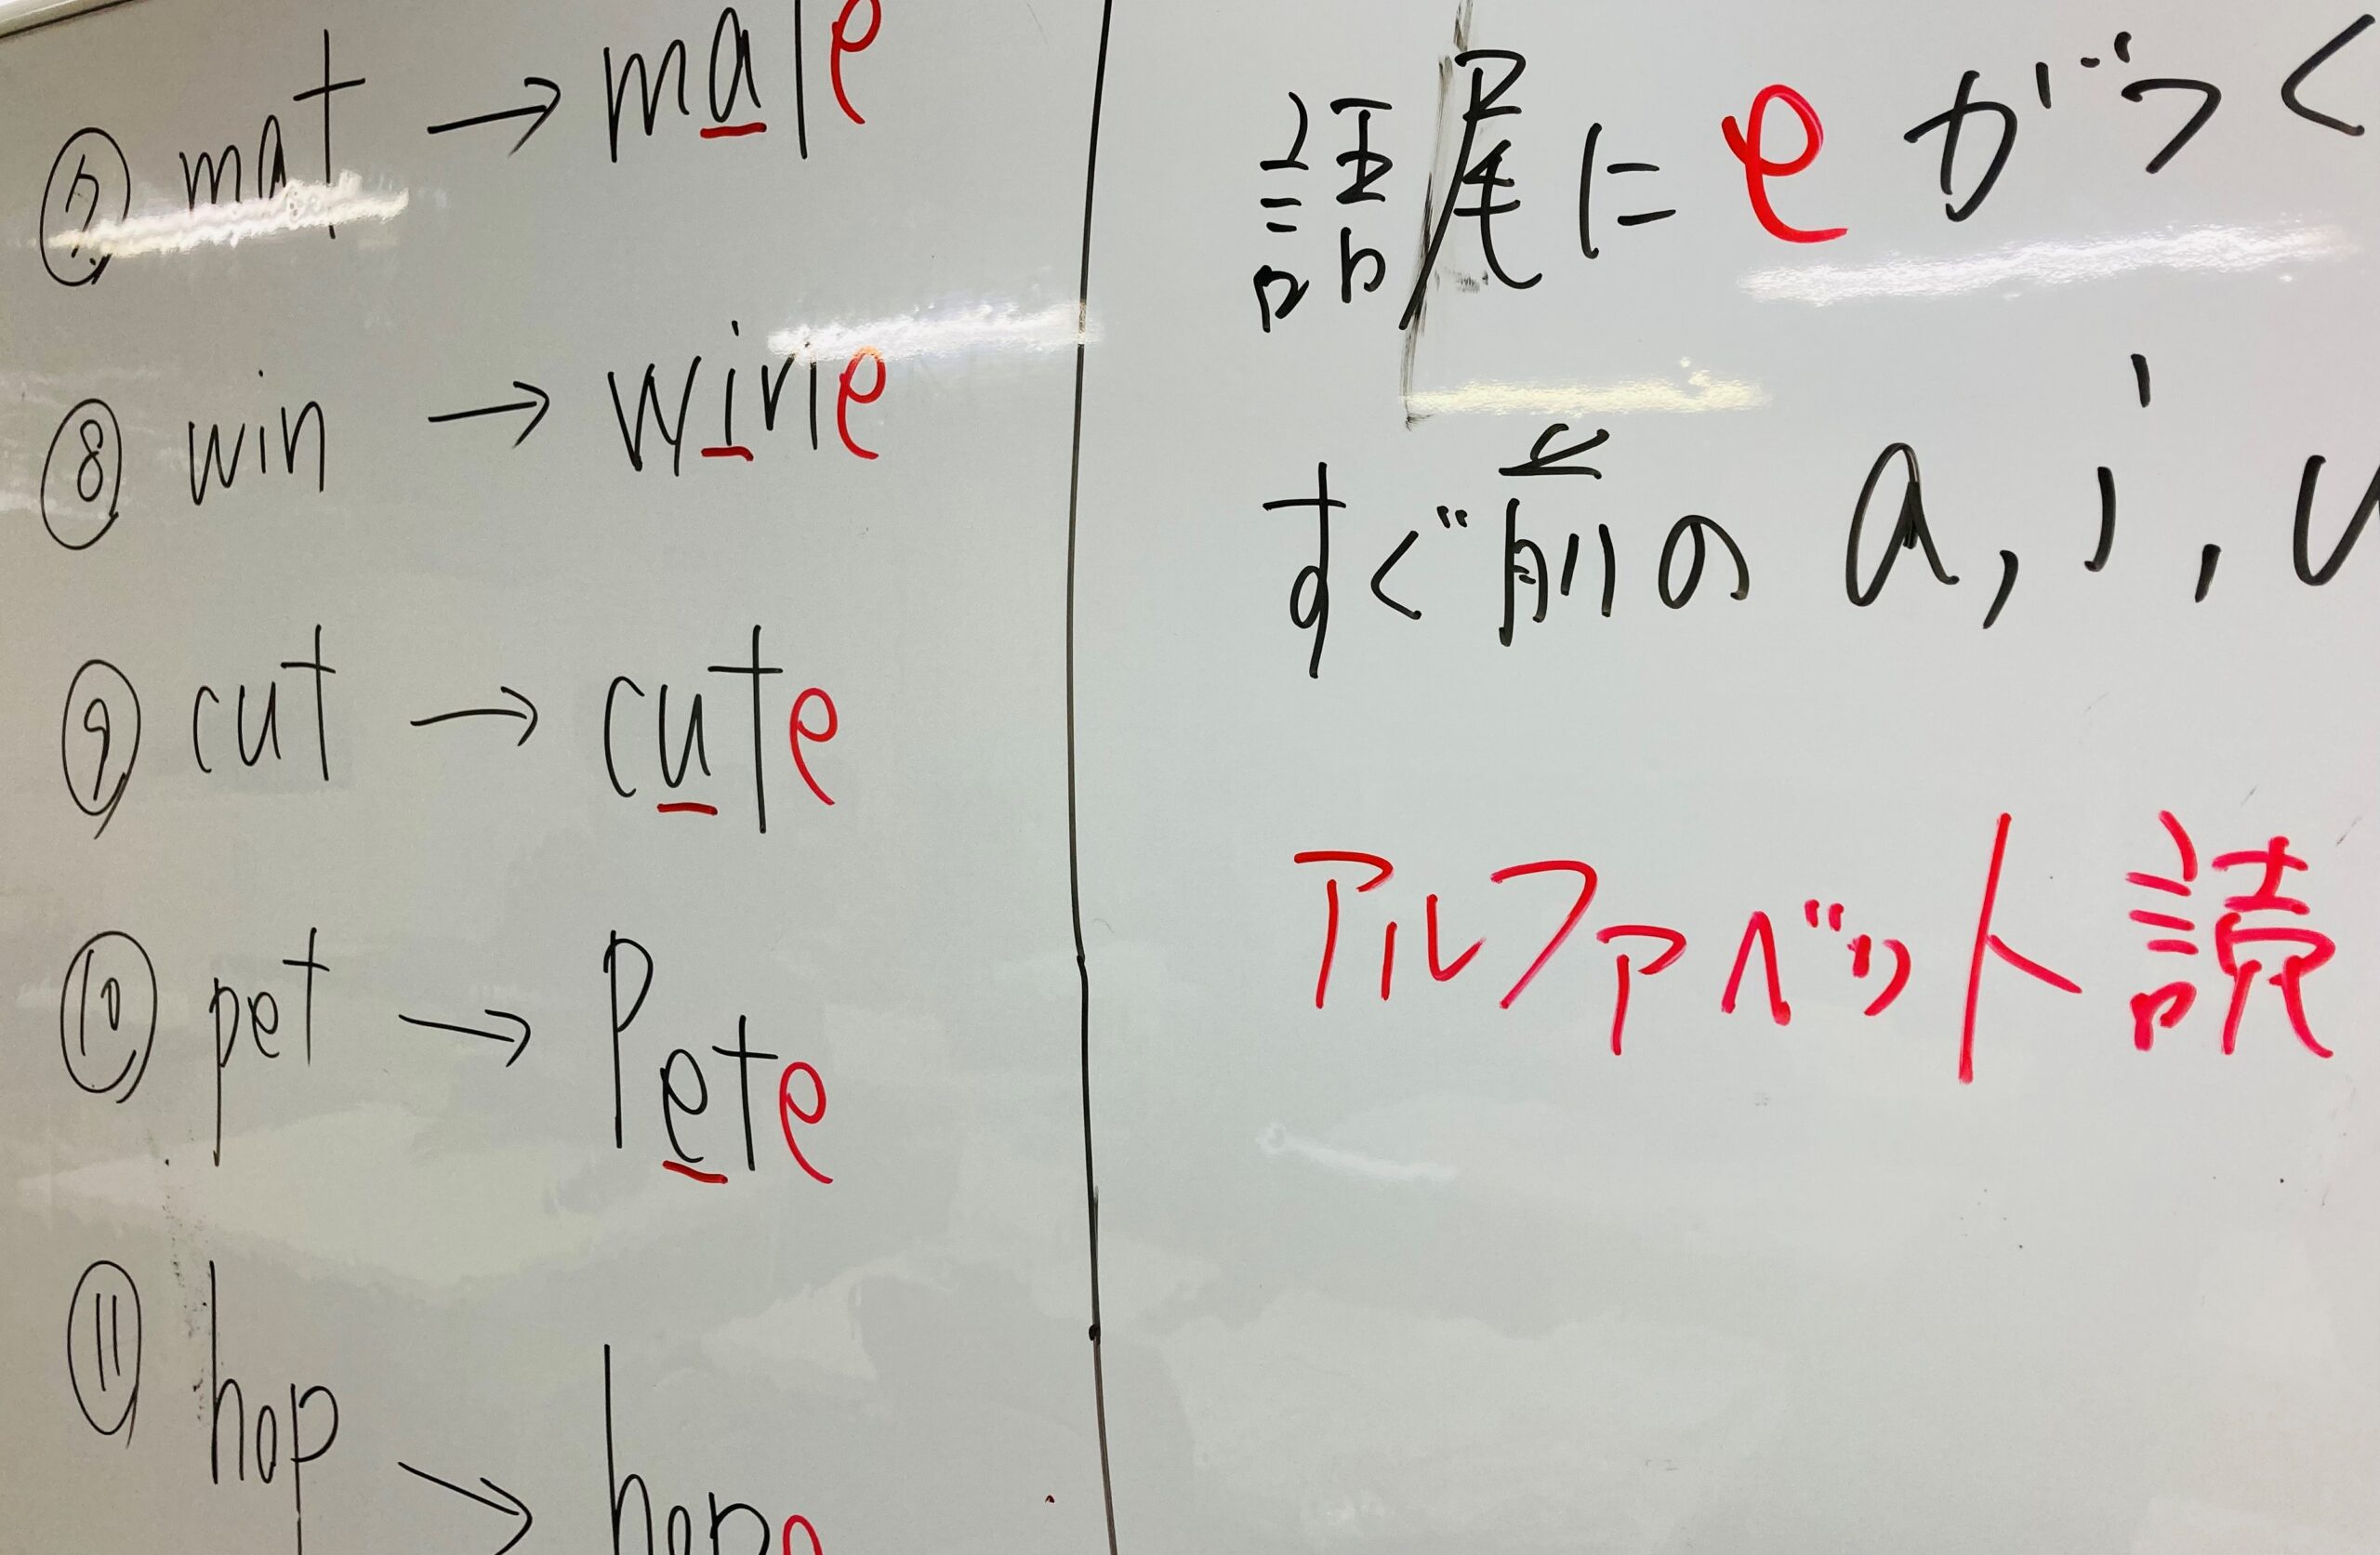 ⑦ mat → male
⑧ win → wine
⑨ cut → cute
⑩ pet → Pete
⑪ hop → hope
語尾に e がつく
すぐ前の a, i, u
アルファベット読